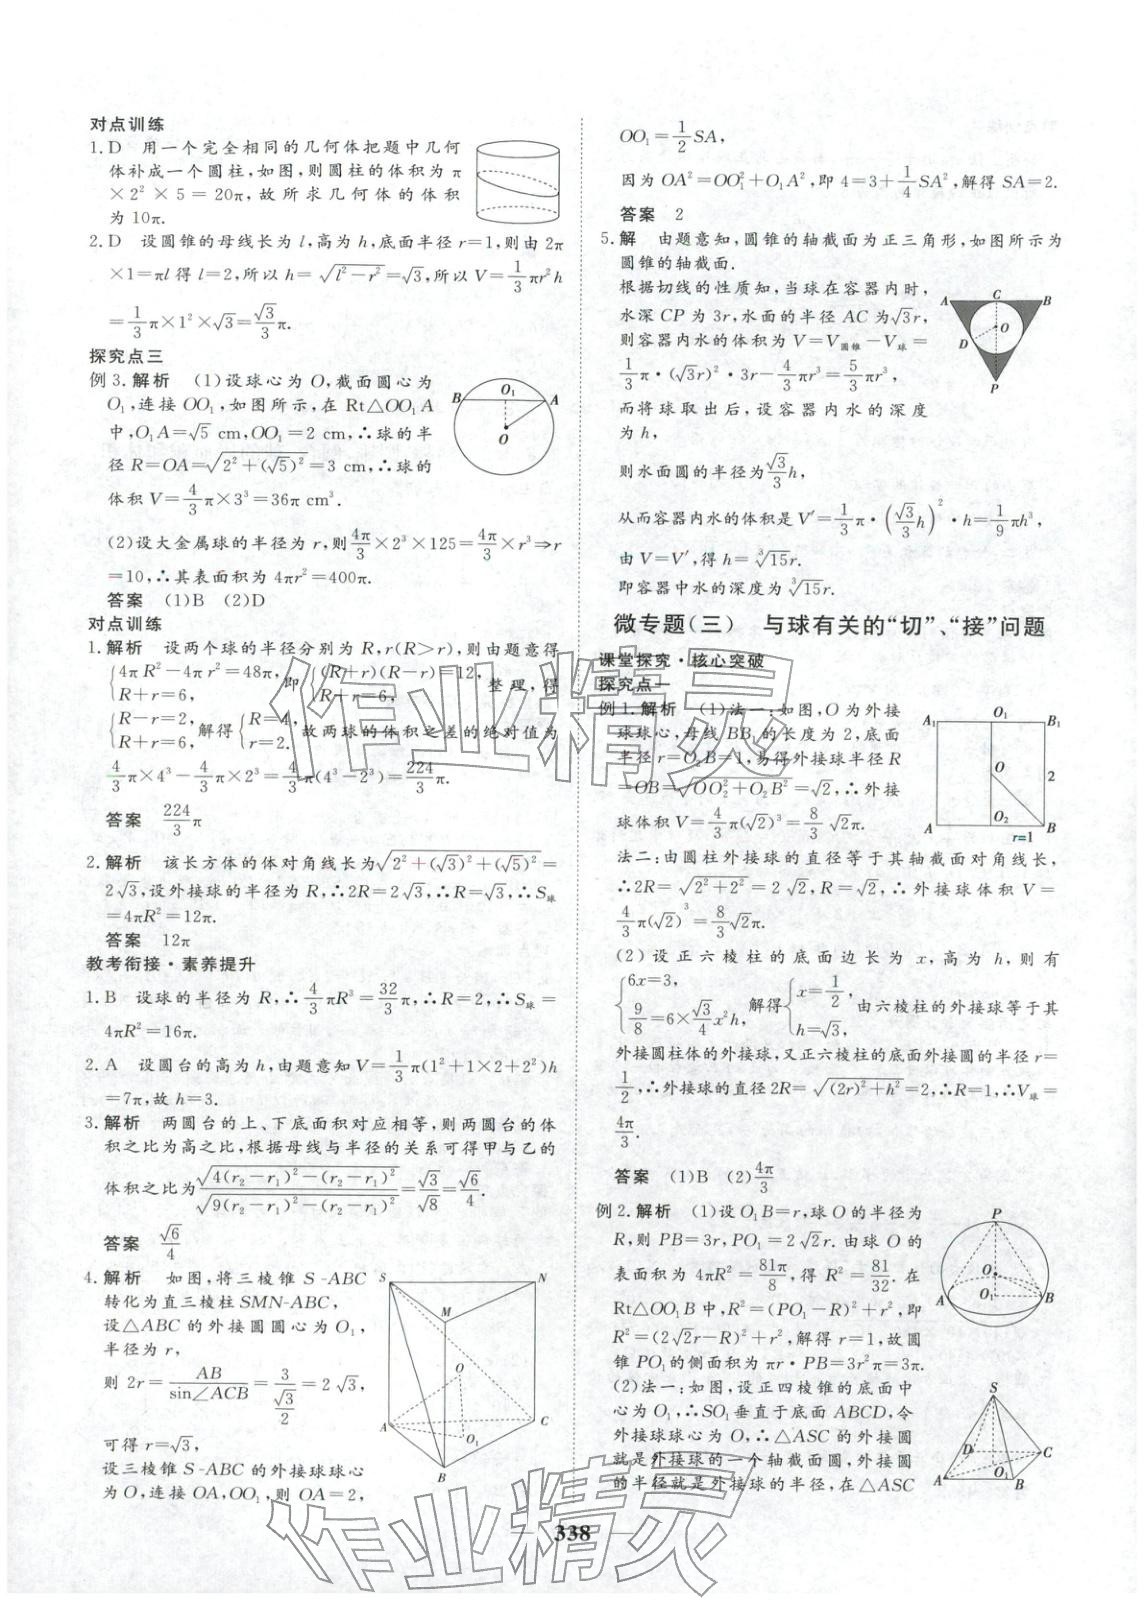 对点训练
1. D 用一个完全相同的几何体把题中几何
体补成一个圆柱,如图,则圆柱的体积为 π
×2²×5=20π,故所求几何体的体积
为 10π.
2. D 设圆锥的母线长为 l,高为 h,底面半径 r=1,则由 2π
×1=πl 得 l=2,所以 h=√(l²−r²)=√3,所以 V=1/3 πr²h
=1/3 π×1²×√3=√3/3 π.
探究点三
例 3. 解析 (1)设球心为 O,截面圆心为
O₁,连接 OO₁,如图所示,在 Rt△OO₁A
中,O₁A=√5 cm,OO₁=2 cm,∴球的半
径 R=OA=√(2²+(√5)²)=3 cm,∴球的
体积 V=4/3 π×3³=36π cm³.
B O₁ A O
(2)设大金属球的半径为 r,则 4π/3×2³×125=4π/3×r³⇒r
=10,∴其表面积为 4πr²=400π.
答案 (1)B (2)D
对点训练
1. 解析 设两个球的半径分别为 R,r(R>r),则由题意得
{4πR²−4πr²=48π, R+r=6, 即{(R+r)(R−r)=12, R+r=6, 整理,得
{R−r=2, R+r=6, 解得{R=4, r=2. 故两球的体积之差的绝对值为
4/3 π×4³−4/3 π×2³=4/3 π(4³−2³)=224/3 π.
答案 224/3 π
2. 解析 该长方体的体对角线长为√(2²+(√3)²+(√5)²)=
2√3,设外接球的半径为 R,∴2R=2√3,∴R=√3,∴S球
=4πR²=12π.
答案 12π
教考衔接·素养提升
1. B 设球的半径为 R,∴4/3 πR³=32/3 π,∴R=2,∴S球=
4πR²=16π.
2. A 设圆台的高为 h,由题意知 V=1/3 π(1²+1×2+2²)h
=7π,故 h=3.
3. 解析 两圆台的上、下底面积对应相等,则两圆台的体
积之比为高之比,根据母线与半径的关系可得甲与乙的
体积之比为 √(4(r₂−r₁)²−(r₂−r₁)²)/√(9(r₂−r₁)²−(r₂−r₁)²)=√3/√8=√6/4.
答案 √6/4
4. 解析 如图,将三棱锥 S-ABC
转化为直三棱柱 SMN-ABC,
设△ABC 的外接圆圆心为 O₁,
半径为 r,
则 2r=AB/sin∠ACB=3/(√3/2)=2√3,
可得 r=√3,
设三棱锥 S-ABC 的外接球球心
为 O,连接 OA,OO₁,则 OA=2,
S N M O A C O₁ B
OO₁=1/2 SA,
因为 OA²=OO₁²+O₁A²,即 4=3+1/4 SA²,解得 SA=2.
答案 2
5. 解 由题意知,圆锥的轴截面为正三角形,如图所示为
圆锥的轴截面.
根据切线的性质知,当球在容器内时,
水深 CP 为 3r,水面的半径 AC 为√3r,
则容器内水的体积为 V=V圆锥−V球=
1/3 π·(√3r)²·3r−4/3 πr³=5/3 πr³,
而将球取出后,设容器内水的深度
为 h,
A C B O D P
则水面圆的半径为√3/3 h,
从而容器内水的体积是 V′=1/3 π·(√3/3 h)²·h=1/9 πh³,
由 V=V′,得 h=∛15r.
即容器中水的深度为∛15r.
微专题(三) 与球有关的“切”、“接”问题
课堂探究·核心突破
探究点一
例 1. 解析 (1)法一:如图,O 为外接
球球心,母线 BB₁ 的长度为 2,底面
半径 r=O₂B=1,易得外接球半径 R
=OB=√(OO₂²+O₂B²)=√2,∴外接
球体积 V=4/3 π(√2)³=8/3 √2π.
A₁ O₁ B₁ O 2 A O₂ r=1 B
法二:由圆柱外接球的直径等于其轴截面对角线长,
∴2R=√(2²+2²)=2√2,R=√2,∴外接球体积 V=
4/3 π(√2)³=8/3 √2π.
(2)设正六棱柱的底面边长为 x,高为 h,则有
{6x=3, 9/8=6×√3/4 x²h, 解得{x=1/2, h=√3, 由六棱柱的外接球等于其
外接圆柱体的外接球,又正六棱柱的底面外接圆的半径 r=
1/2,∴外接球的直径 2R=√((2r)²+h²)=2,∴R=1,∴V球=
4π/3.
答案 (1)B (2)4π/3
例 2. 解析 (1)设 O₁B=r,球 O 的半径为
R,则 PB=3r,PO₁=2√2r. 由球 O 的
表面积为 4πR²=81π/8,得 R²=81/32. 在
Rt△OO₁B 中,R²=(PO₁−R)²+r²,即
R²=(2√2r−R)²+r²,解得 r=1,故圆
锥 PO₁ 的侧面积为 πr·PB=3r²π=3π.
P O A O₁ B
(2)法一:如图,设正四棱锥的底面中
心为 O₁,∴SO₁ 垂直于底面 ABCD,令
外接球球心为 O,∴△ASC 的外接圆
就是外接球的一个轴截面圆,外接圆
的半径就是外接球的半径,在△ASC
S D C O₁ A B
338
作业精灵
作业精灵